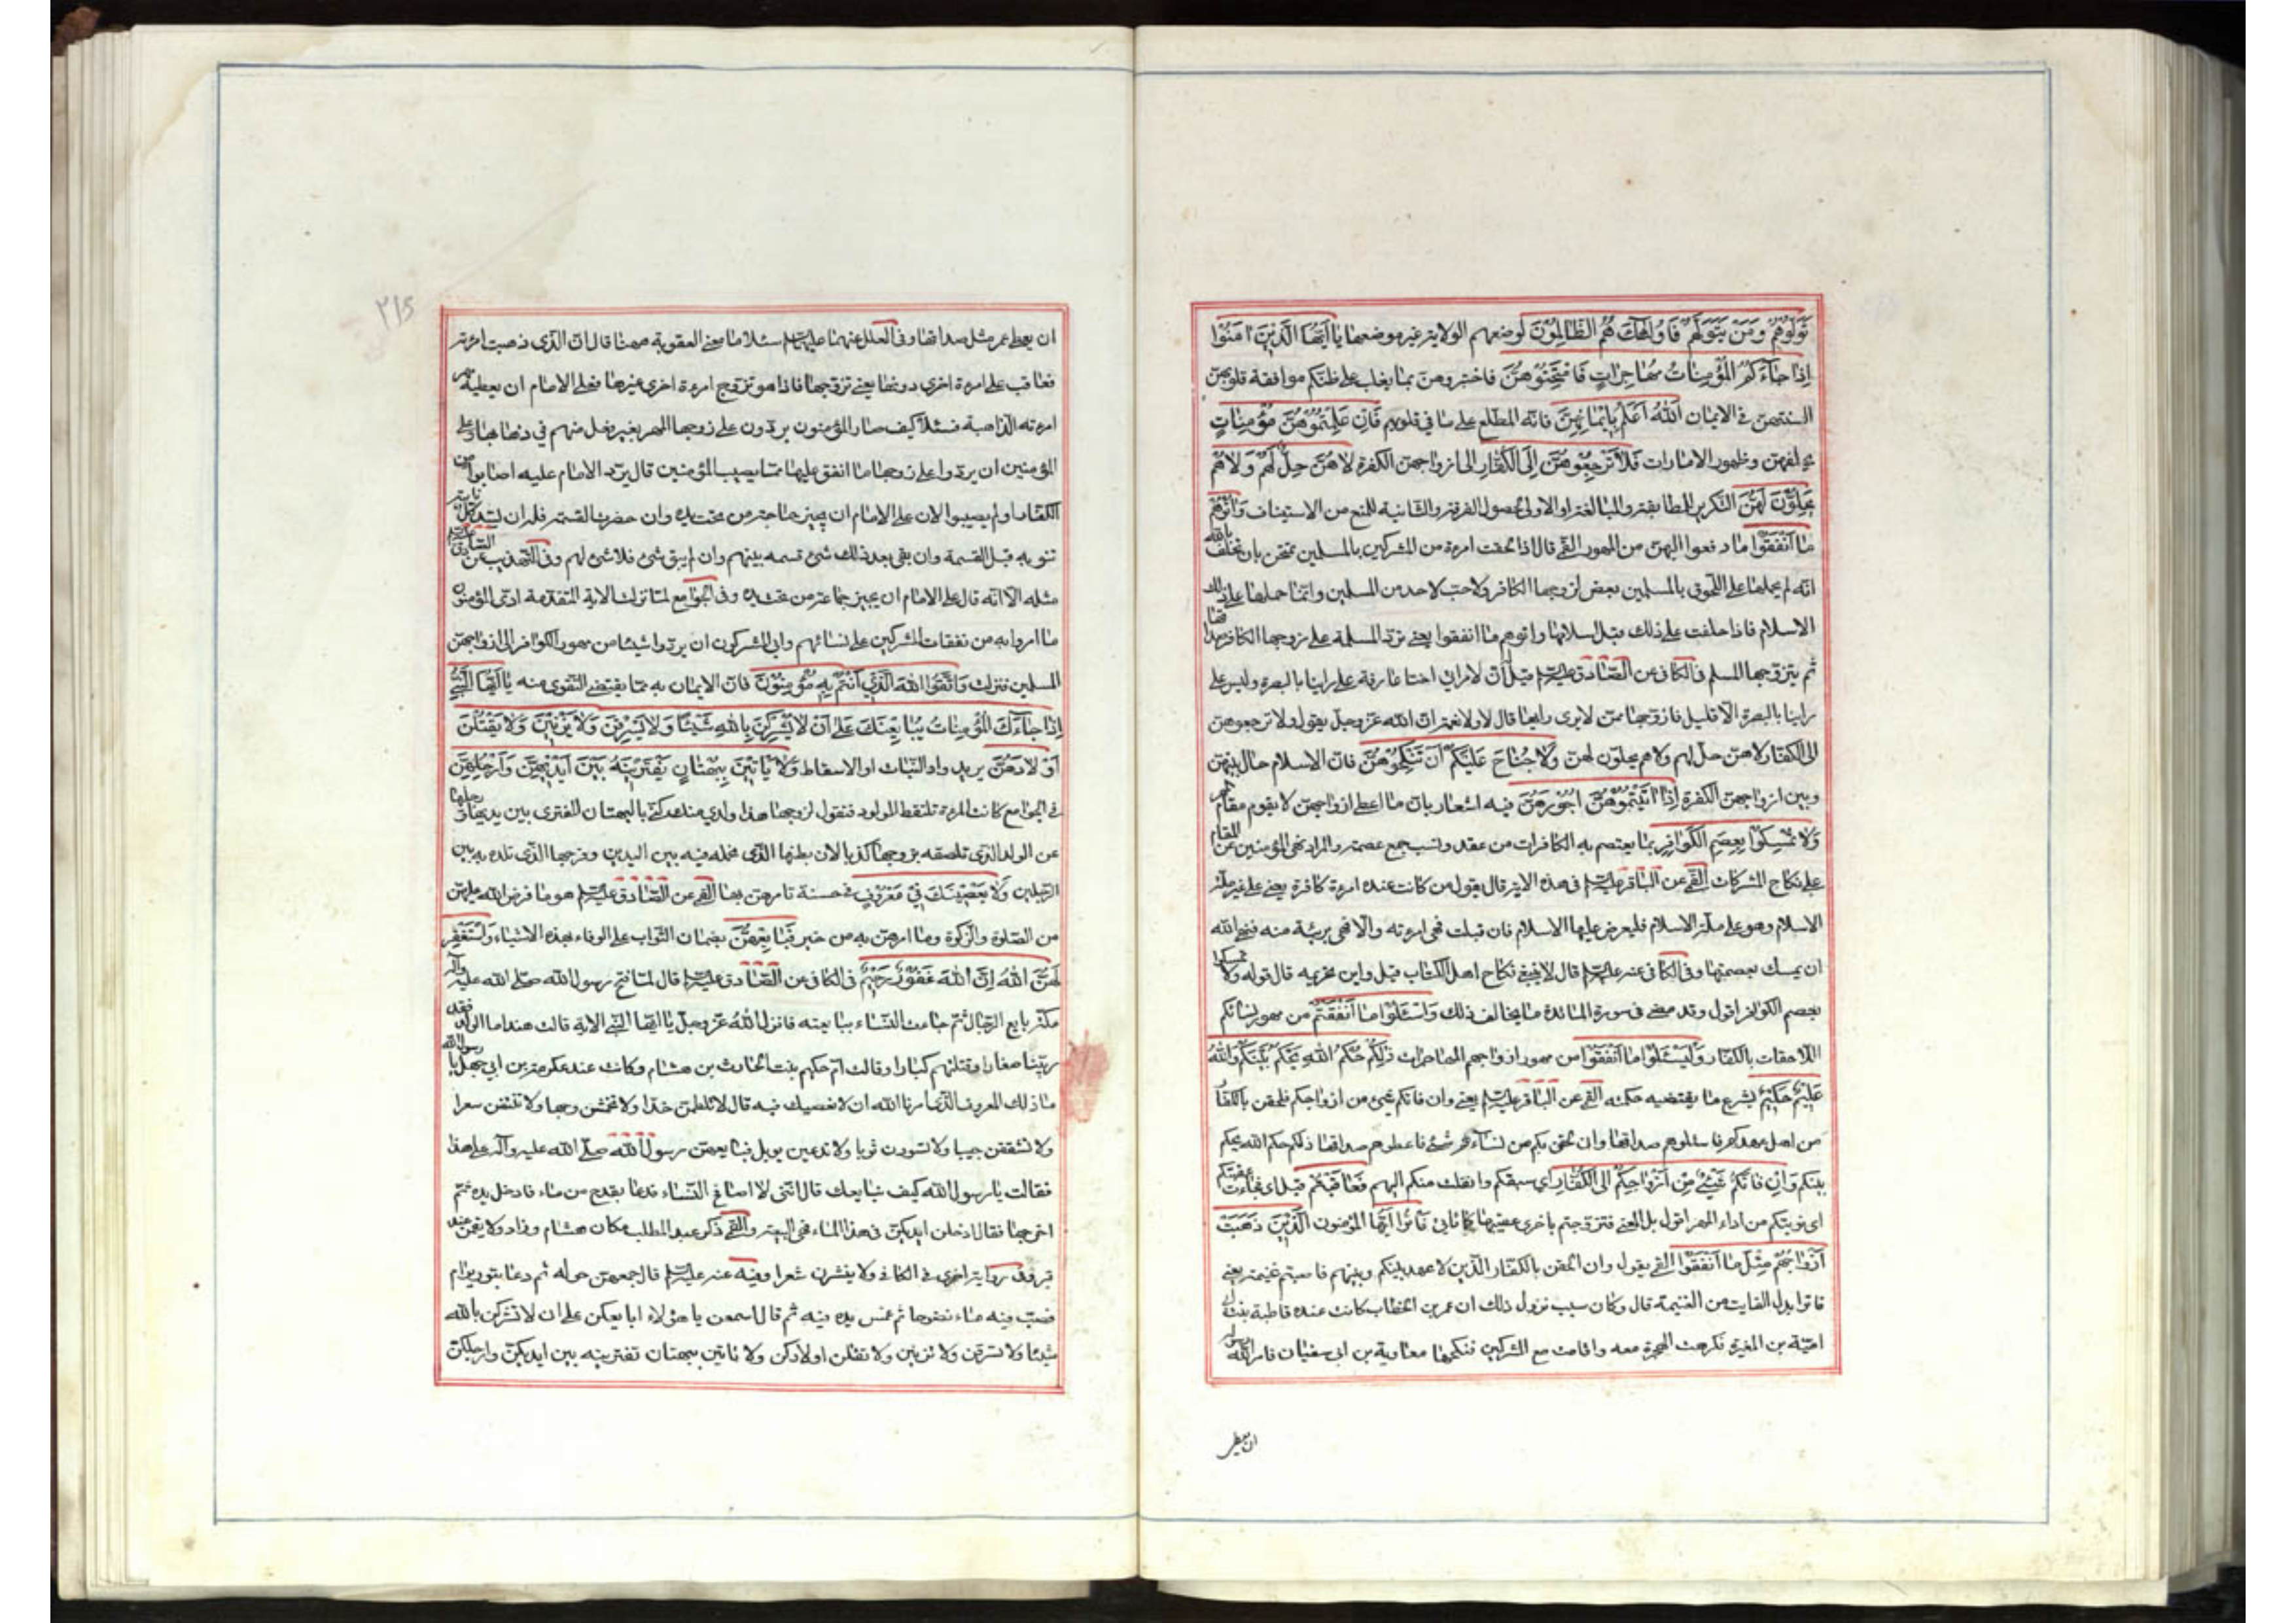 تَوَلَّوْهُمْ وَمَنْ يَتَوَلَّهُمْ فَاُولٰئِكَ هُمُ الظّالِمُونَ لوضعهم الولاية غير موضعها يا اَيُّهَا الَّذينَ امَنُوا
اِذا جاءَكُمُ الْمُؤْمِناتُ مُهاجِراتٍ فَامْتَحِنُوهُنَّ فاختبروهن بما يغلب على ظنكم موافقة قلوبهن
السنتهن في الايمان اَللّهُ اَعْلَمُ بِايمانِهِنَّ فانه المطلع على ما في قلوبهم فَاِنْ عَلِمْتُمُوهُنَّ مُؤْمِناتٍ
بحلفهن وظهور الامارات فَلا تَرْجِعُوهُنَّ اِلَى الْكُفّارِ الى ازواجهن الكفرة لا هُنَّ حِلٌّ لَهُمْ وَلا هُمْ
يَحِلُّونَ لَهُنَّ التكرير للمطابقة والمبالغة او الاولى لحصول الفرقة والثانية للمنع من الاستيناف وَاتُوهُمْ
ما اَنْفَقُوا ما دفعوا اليهن من المهور القمي قال اذا لحقت امرءة من المشركين بالمسلمين تمتحن بان تحلف بالله
انه لم يحملها على اللحوق بالمسلمين بغض لزوجها الكافر ولا حب لاحد من المسلمين وانما حملها على ذلك
الاسلام فاذا حلفت على ذلك قبل اسلامها واتوهم ما انفقوا يعني ترد المسلمة على زوجها الكافر صداقها
ثم يتزوجها المسلم في الكافي عن الصادق عليه السلم قيل ان لامراتي اختا عارفة على راينا بالبصرة وليس على
راينا بالبصرة الا قليل فازوجها ممن لا يرى رايها قال لا ولا نعمة ان الله عز وجل يقول ولا ترجعوهن
الى الكفار لا هن حل لهم ولا هم يحلون لهن وَلا جُناحَ عَلَيْكُمْ اَنْ تَنْكِحُوهُنَّ فان الاسلام حال بينهن
وبين ازواجهن الكفرة اِذا اتَيْتُمُوهُنَّ اُجُورَهُنَّ فيه اشعار بان ما اعطى ازواجهن لا يقوم مقام المهر
وَلا تُمْسِكُوا بِعِصَمِ الْكَوافِرِ بما يعتصم به الكافرات من عقد وسبب جمع عصمة والمراد نهي المؤمنين عن المقام
على نكاح المشركات القمي عن الباقر عليه السلم في هذه الاية قال يقول من كانت عنده امرءة كافرة يعني على غير ملة
الاسلام وهو على ملة الاسلام فليعرض عليها الاسلام فان قبلت فهي امرءته والا فهي بريئة منه فنهى الله
ان يمسك بعصمتها وفي الكافي عنه عليه السلم قال لا ينبغي نكاح اهل الكتاب قيل واين تحريمه قال قوله ولا تمسكوا
بعصم الكوافر اقول وقد مضى في سورة المائدة ما يخالف ذلك وَاسْئَلُوا ما اَنْفَقْتُمْ من مهور نسائكم
اللاحقات بالكفار وَلْيَسْئَلُوا ما اَنْفَقُوا من مهور ازواجهم المهاجرات ذلِكُمْ حُكْمُ اللهِ يَحْكُمُ بَيْنَكُمْ وَاللهُ
عَليمٌ حَكيمٌ يشرع ما يقتضيه حكمته القمي عن الباقر عليه السلم يعني وان فاتكم شئ من ازواجكم فلحقن بالكفار
من اهل عهدكم فاسئلوهم صداقها وان لحقن بكم من نساءهم شئ فاعطوهم صداقها ذلكم حكم الله يحكم
بينكم وَاِنْ فاتَكُمْ شَيْءٌ مِنْ اَزْواجِكُمْ اِلَى الْكُفّارِ اي سبقكم وانفلت منكم اليهم فَعاقَبْتُمْ قيل اي فجاءت عقبتكم
اي نوبتكم من اداء المهر اقول بل المعنى فتزوجتم باخرى عقيبها كما ياتي فَاتُوا ايها المؤمنون الَّذينَ ذَهَبَتْ
اَزْواجُهُمْ مِثْلَ ما اَنْفَقُوا القمي يقول وان لحقن بالكفار الذين لا عهد بينكم وبينهم فاصبتم غنيمة يعني
فاتوا بدل الفايت من الغنيمة قال وكان سبب نزول ذلك ان عمر بن الخطاب كانت عنده فاطمة بنت ابي
امية بن المغيرة فكرهت الهجرة معه واقامت مع المشركين فنكحها معاوية بن ابي سفيان فامر الله رسوله
ان يعطي
٢١٥
ان يعطي عمر مثل صداقها وفي العلل عنهما عليهما السلم سئلا ما معنى العقوبة ههنا قال ان الذي ذهبت امرءته
فعاقب على امرءة اخرى دونها يعني تزوجها فاذا هو تزوج امرءة اخرى غيرها فعلى الامام ان يعطيه مهر
امرءته الذاهبة فسئلا كيف صار المؤمنون يردون على زوجها المهر بغير فعل منهم في ذهابها وعلى
المؤمنين ان يردوا على زوجها ما انفق عليها مما يصيب المؤمنين قال يرد الامام عليه اصابوا من
الكفار او لم يصيبوا لان على الامام ان يجيز حاجته من تحت يده وان حضرت القسمة فله ان يسد كل نائبة
تنوبه قبل القسمة وان بقى بعد ذلك شئ قسمه بينهم وان لم يبق شئ فلا شئ لهم وفي التهذيب عن الصادق عليه السلم
مثله الا انه قال على الامام ان يجيز جماعة من تحت يده وفي الجوامع لما نزلت الاية المتقدمة ادى المؤمنون
ما امروا به من نفقات المشركين على نسائهم وابى المشركون ان يردوا شيئا من مهور الكوافر الى ازواجهن
المسلمين فنزلت وَاتَّقُوا اللهَ الَّذي اَنْتُمْ بِه مُؤْمِنُونَ فان الايمان به مما يقتضي التقوى منه يا اَيُّهَا النَّبِيُّ
اِذا جاءَكَ الْمُؤْمِناتُ يُبايِعْنَكَ عَلى اَنْ لا يُشْرِكْنَ بِاللهِ شَيْئًا وَلا يَسْرِقْنَ وَلا يَزْنينَ وَلا يَقْتُلْنَ
اَوْلادَهُنَّ يريد واد البنات او الاسقاط وَلا يَاْتينَ بِبُهْتانٍ يَفْتَرينَهُ بَيْنَ اَيْديهِنَّ وَاَرْجُلِهِنَّ
في الجوامع كانت المرءة تلتقط المولود فتقول لزوجها هذا ولدي منك كنى بالبهتان المفترى بين يديها ورجليها
عن الولد الذي تلصقه بزوجها كذبا لان بطنها الذي تحمله فيه بين اليدين وفرجها الذي تلده به بين
الرجلين وَلا يَعْصينَكَ في مَعْرُوفٍ في حسنة تامرهن بها القمي عن الصادق عليه السلم هو ما فرض الله عليهن
من الصلوة والزكوة وما امرهن به من خير فَبايِعْهُنَّ بضمان الثواب على الوفاء بهذه الاشياء وَاسْتَغْفِرْ
لَهُنَّ اللهَ اِنَّ اللهَ غَفُورٌ رَحيمٌ في الكافي عن الصادق عليه السلم قال لما فتح رسول الله صلى الله عليه وآله
مكة بايع الرجال ثم جاءت النساء يبايعنه فانزل الله عز وجل يا ايها النبي الاية قالت هند اما الولد فقد
ربينا صغارا وقتلتهم كبارا وقالت ام حكيم بنت الحارث بن هشام وكانت عند عكرمة بن ابي جهل يا رسول الله
ما ذلك المعروف الذي امرنا الله ان لا نعصيك فيه قال لا تلطمن خدا ولا تخمشن وجها ولا تنتفن شعرا
ولا تشققن جيبا ولا تسودن ثوبا ولا تدعين بويل فبايعهن رسول الله صلى الله عليه وآله على هذا
فقالت يا رسول الله كيف نبايعك قال انني لا اصافح النساء فدعا بقدح من ماء فادخل يده ثم
اخرجها فقال ادخلن ايديكن في هذا الماء فهي البيعة والقمي ذكر عبد المطلب مكان هشام وزاد ولا تقمن عند
قبر وفي رواية اخرى في الكافي ولا ينشرن شعرا وفيه عنه عليه السلم قال جمعهن حوله ثم دعا بتور برام
فصب فيه ماء نضوحا ثم غمس يده فيه ثم قال اسمعن يا هؤلاء ابايعكن على ان لا تشركن بالله
شيئا ولا تسرقن ولا تزنين ولا تقتلن اولادكن ولا تاتين ببهتان تفترينه بين ايديكن وارجلكن